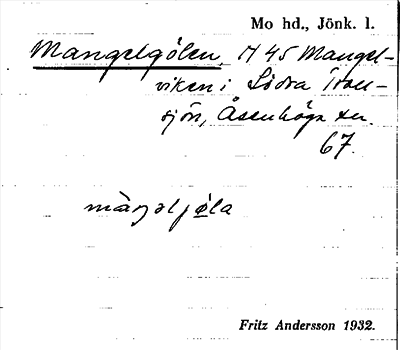 Mo hd., Jönk. l.
Mangelgölen, H 45 Mangel-
viken i Södra Träll-
sjön, Åsenhöga sn.
67.
màŋəljø̀la
Fritz Andersson 1932.